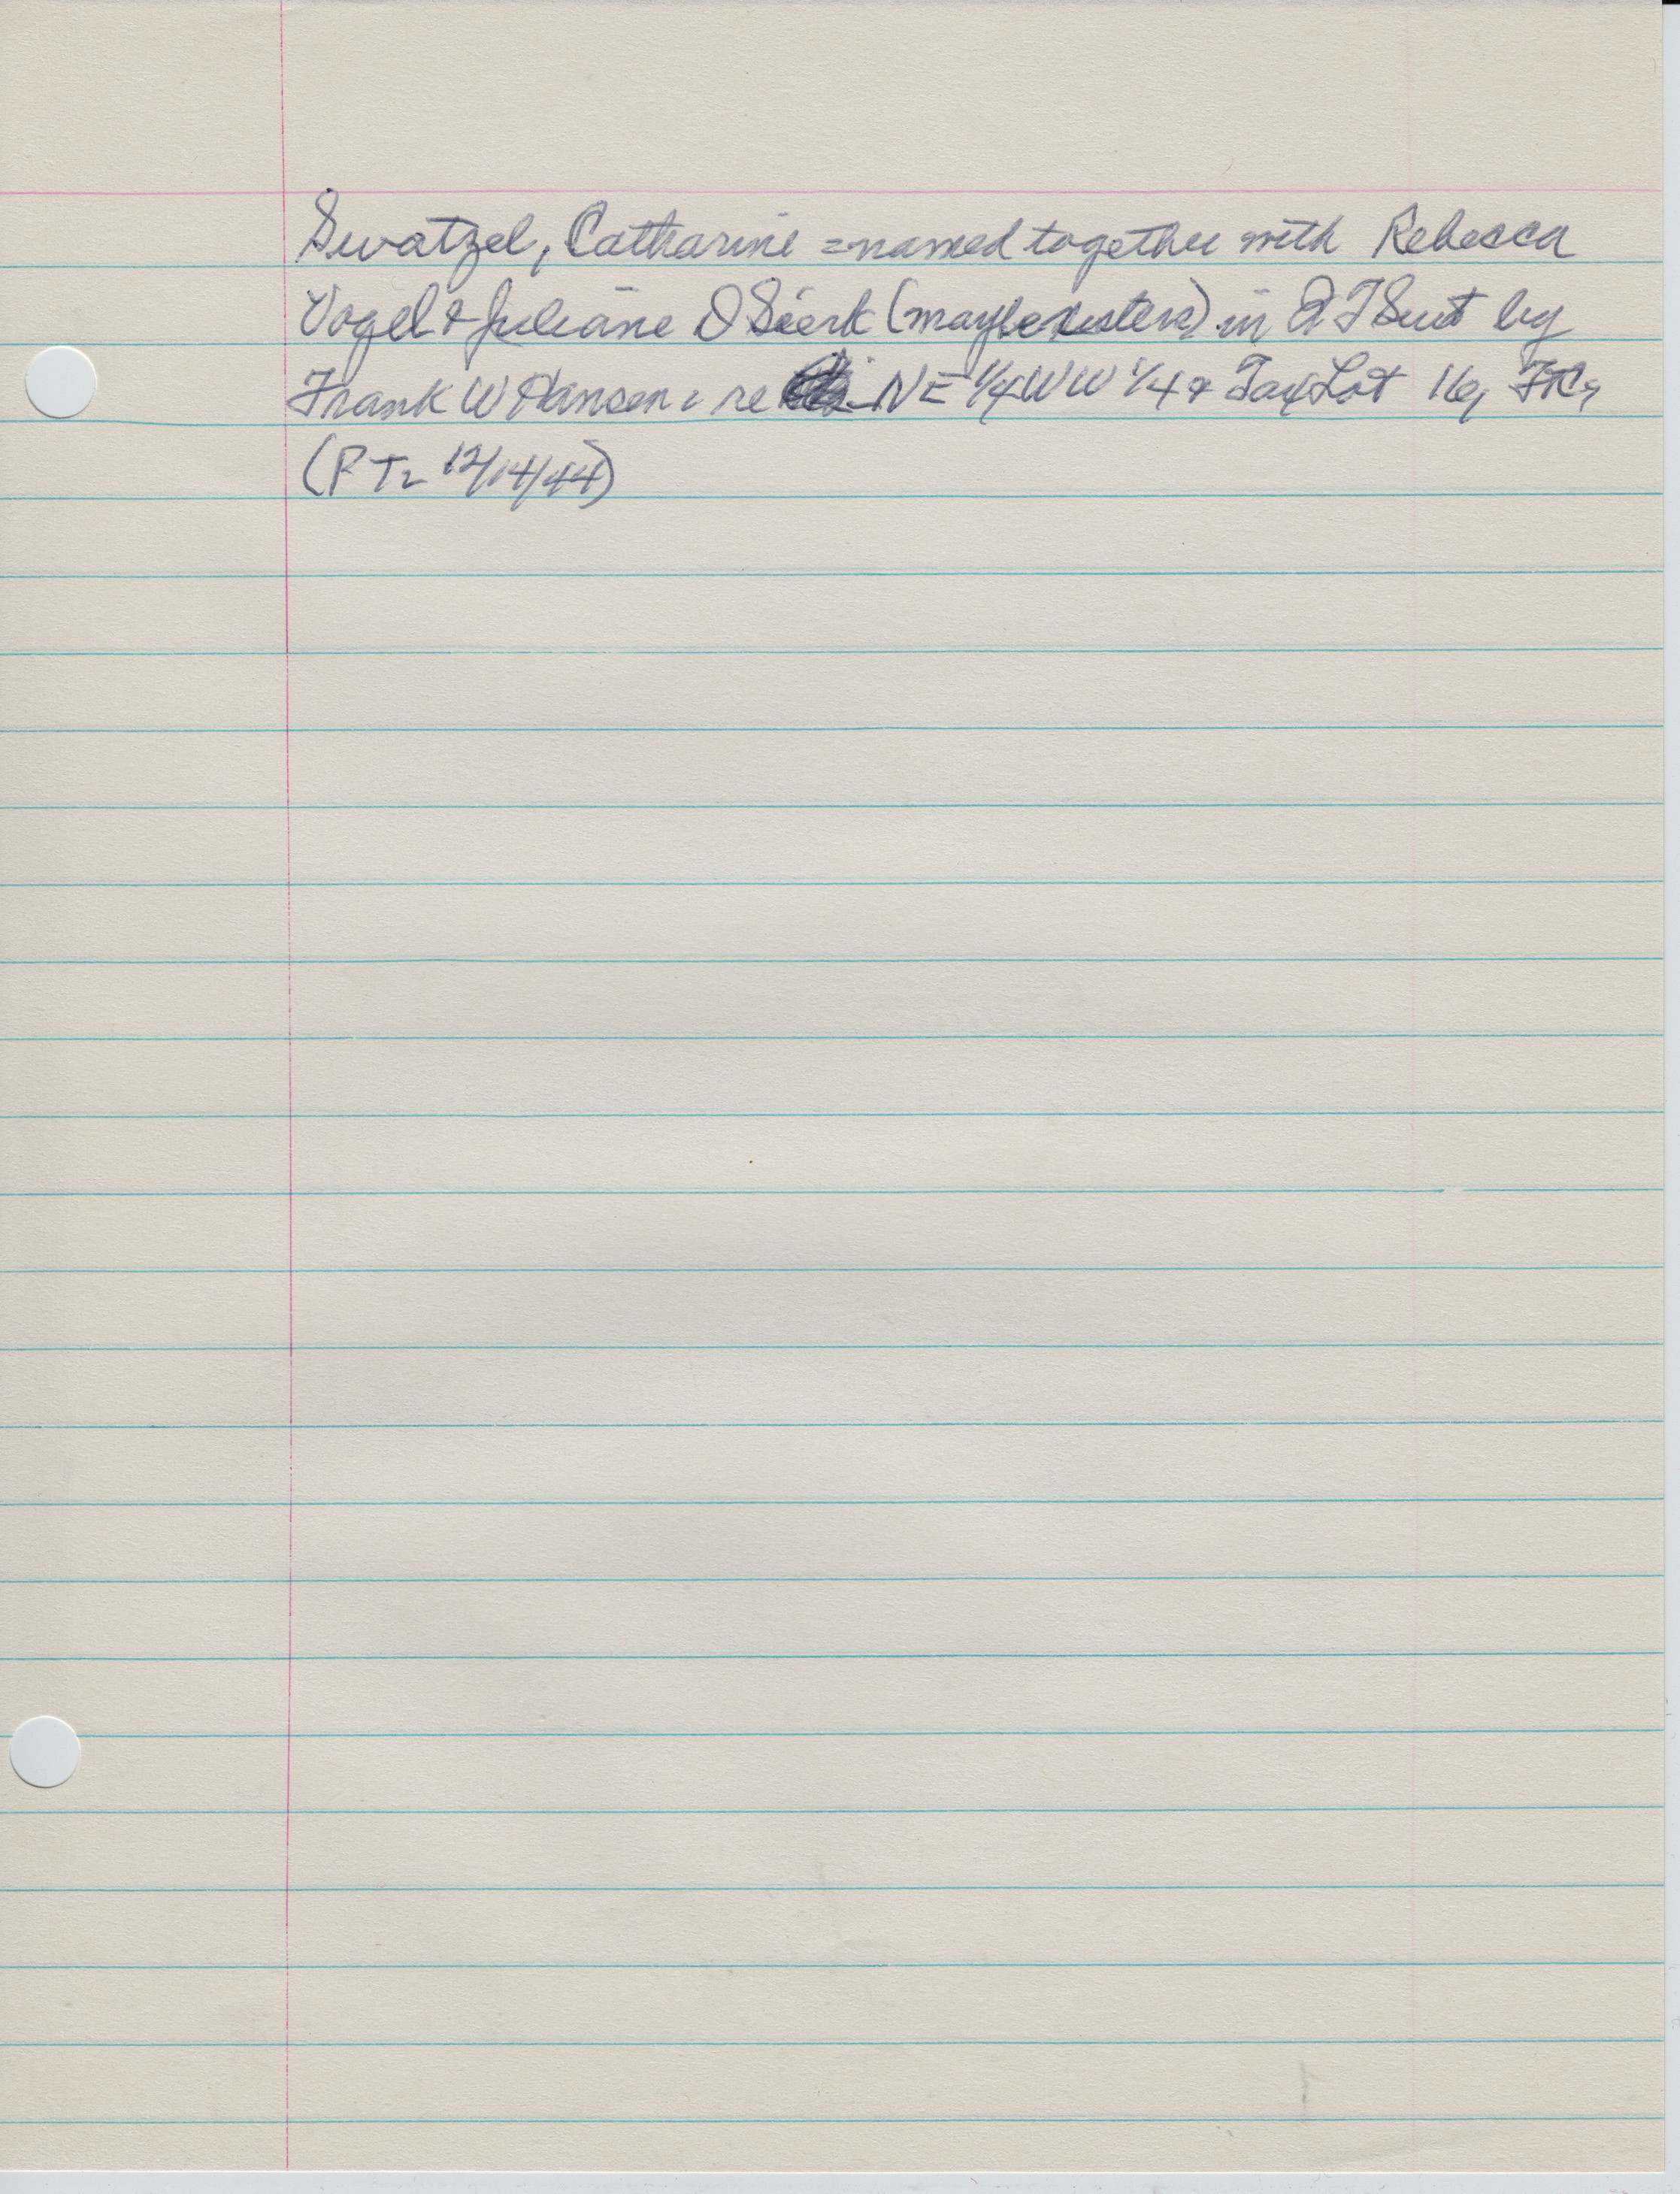 Swatzel, Catharine = named together with Rebecca
Vogel & Juliane D Sierk (maybe sisters) in QT Suit by
Frank W Hansen: re NE 1/4 WW 1/4 & Tax Lot 16,
(PT 12/14/44)